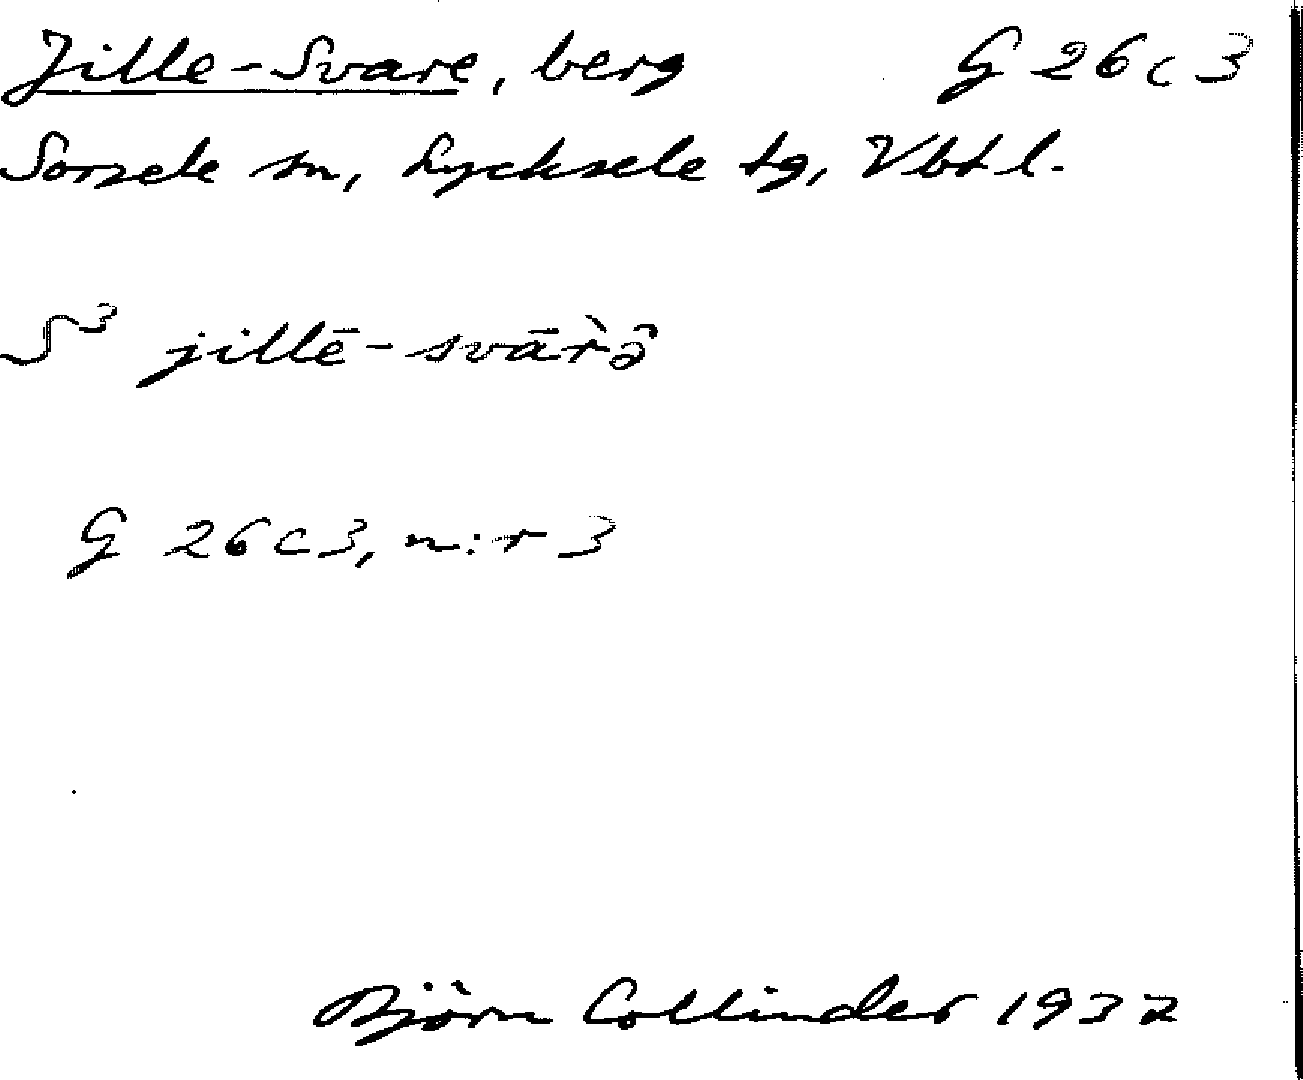 Jille-Svare, berg G 26 c 3
Sorsele sn, Lycksele tg, Vbtl.
S³ jillē-svār̀ə̑
G 26 c 3, n:r 3
Björn Collinder 1932